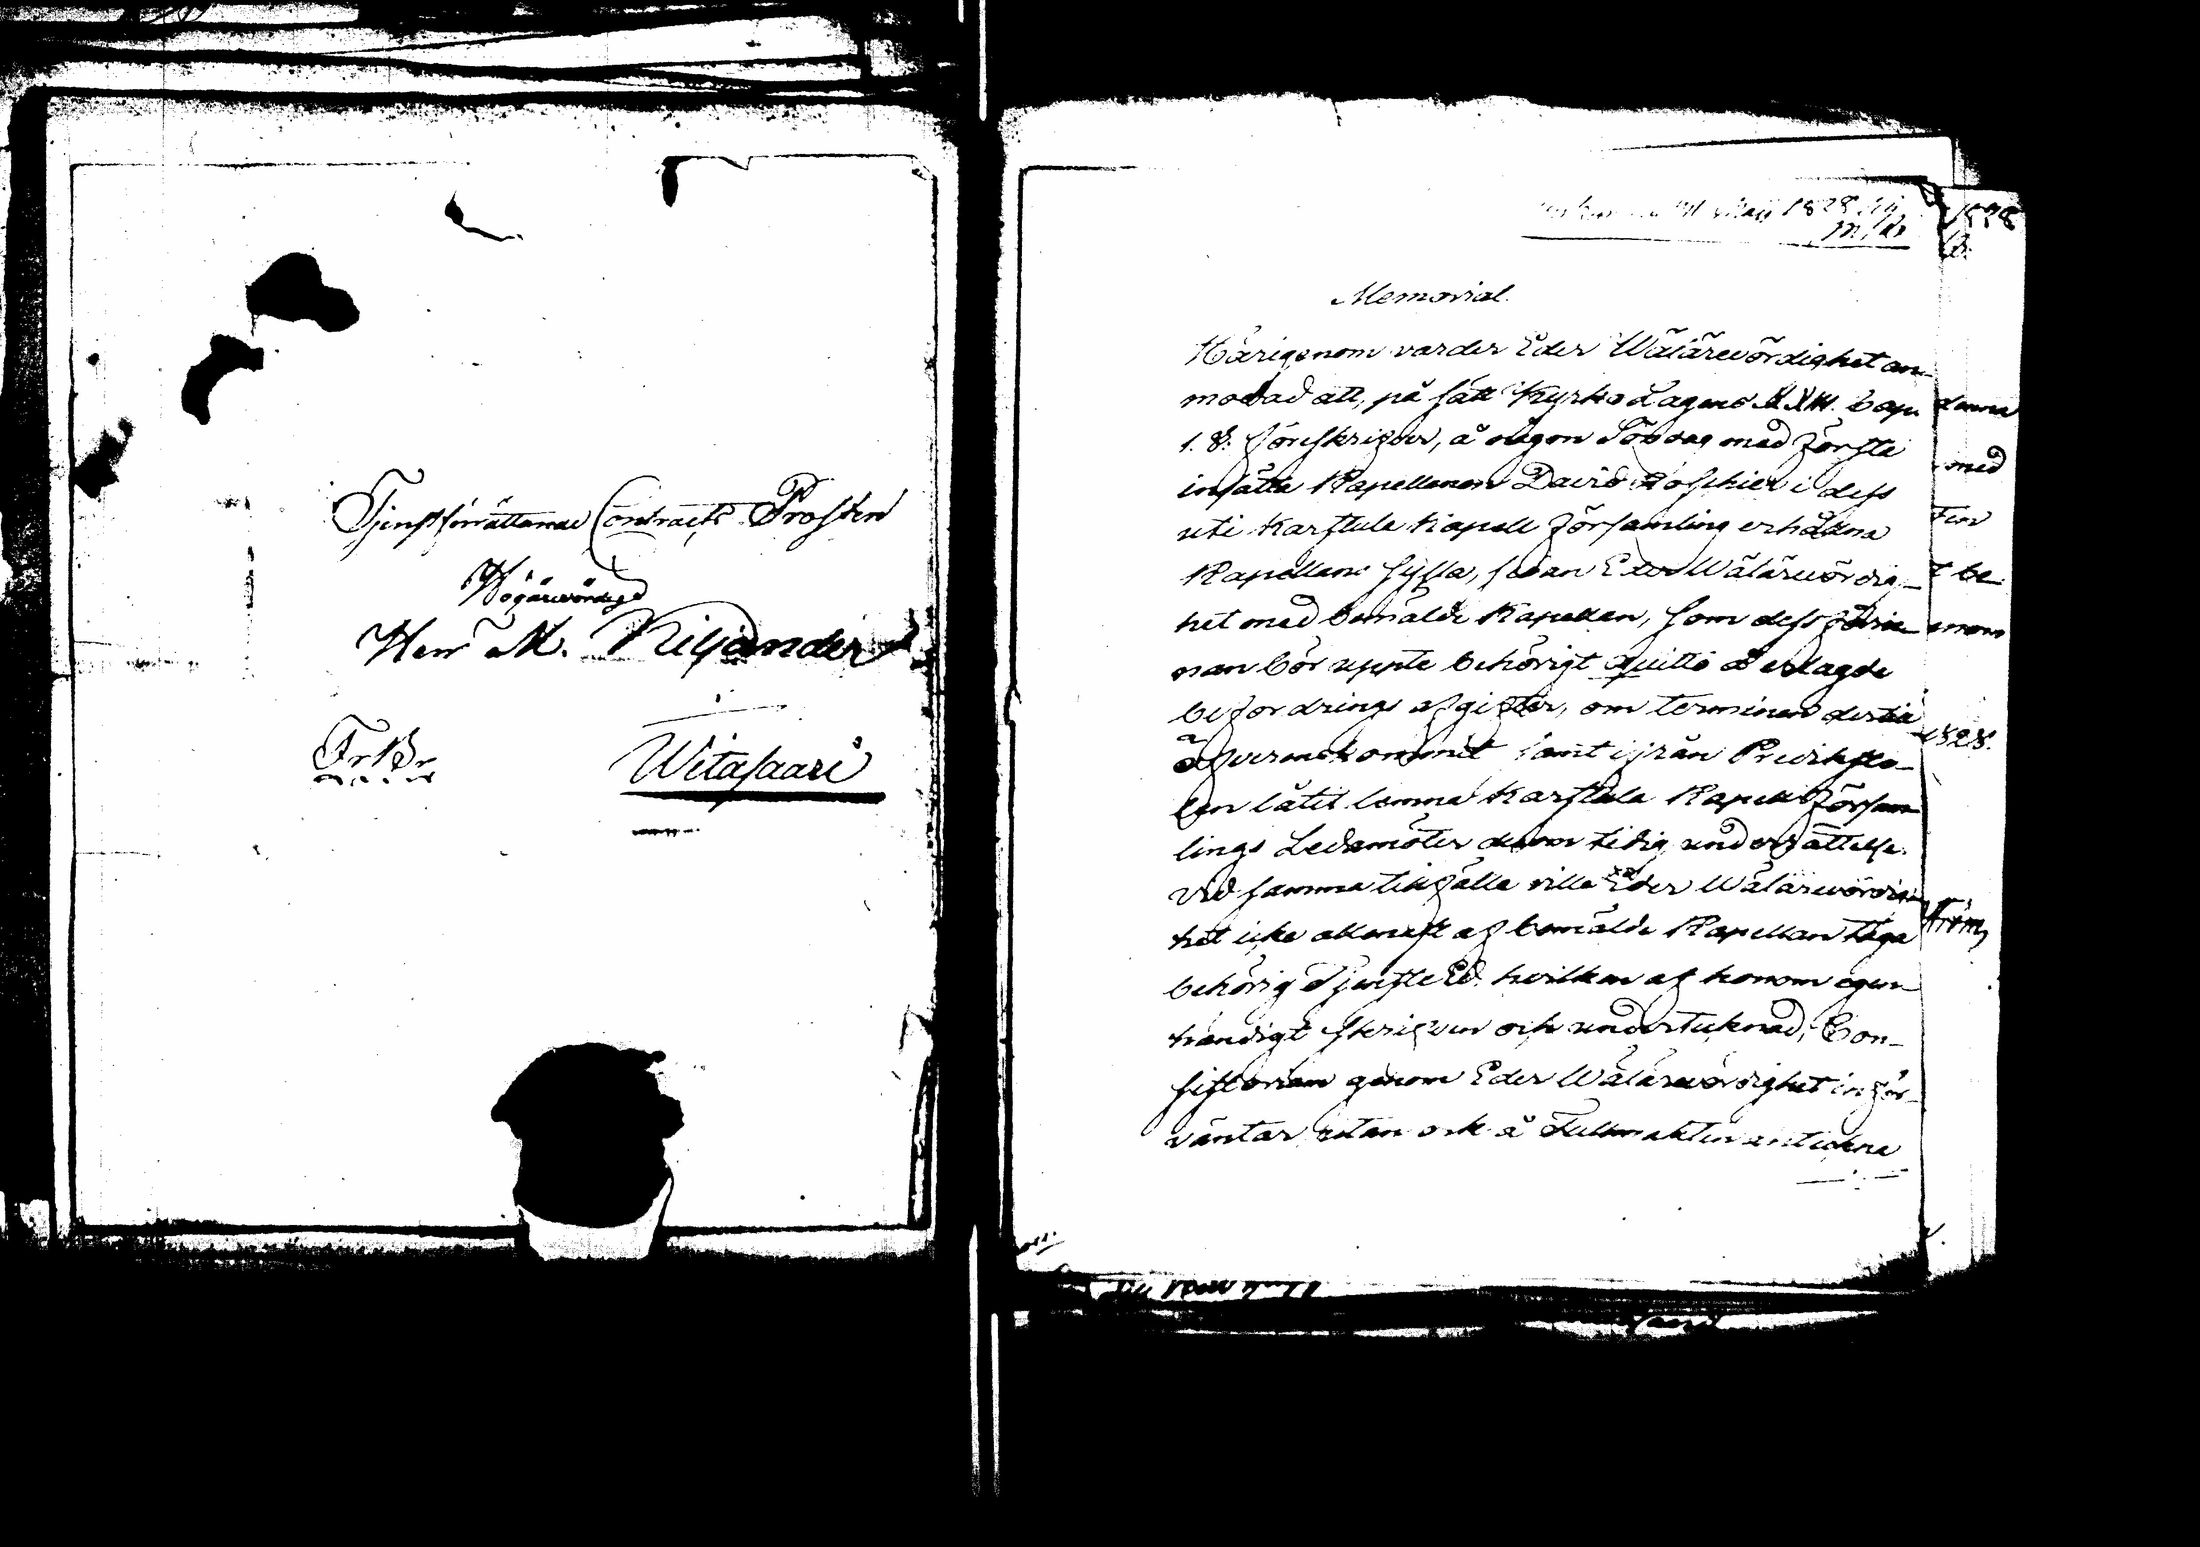 Tjenstförrättande Contracts Prosten
Högärevördige
Herr M. Kiljander
Fr. Br.
Witasaari
Maji 1828
Memorial.
Härigenom varder Eder Wälärevördighet an-
modad att, på sätt Kyrko Lagens XXIII. Cap.
1. §. föreskrifver, å någon Söndag med första
insätta Kapellanen David Roschier i dess
uti Karstula Kapell Församling erhållna
Kapellans syssla, sedan Eder Wälärevördig-
het med bemälde Kapellan, som dess förin-
nan bör uppte behörigt quitto å erlagde
befordrings afgifter, om terminen dertill
öfverenskommit samt ifrån Prediksto-
len låtit lemna Karstula Kapells Försam-
lings Ledamöter derom tidig underrättelse.
Vid samma tillfälle ville Eder Wälärevördig-
het icke allenast af bemälde Kapellan taga
behörig Tjenste Ed. hvilken af honom egen-
händigt skrifven och undertecknad, Con-
sistorium genom Eder Wälärevördighet inför-
väntar utan ock å Fullmakten anteckna
1828
denna
med
t be
1828.
ström,